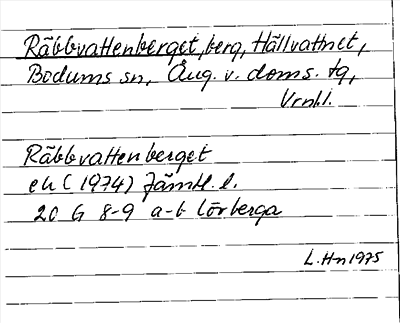 Räbbvattenberget, berg, Hällvattnet,
Bodums sn, Ång. v. doms. tg,
Vrnl.l.
Räbbvattenberget
ek (1974) Jämtl. l.
20 G 8-9 a-b Lövberga
L. Hn 1975